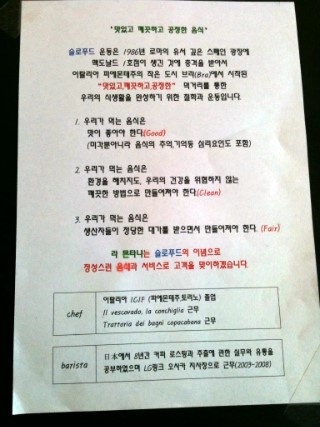 "맛있고 깨끗하고 공정한 음식"
슬로푸드 운동은 1986년 로마의 유서 깊은 스페인 광장에
맥도날드 1호점이 생긴 것에 충격을 받아서
이탈리아 피에몬테주의 작은 도시 브라(Bra)에서 시작된
"맛있고,깨끗하고,공정한" 먹거리를 통한
우리의 식생활을 완성하기 위한 철학과 운동입니다.
1. 우리가 먹는 음식은
맛이 좋아야 한다(Good)
(미각뿐아니라 음식의 추억,기억등 심리요인도 포함)
2. 우리가 먹는 음식은
환경을 해치지도, 우리의 건강을 위협하지 않는
깨끗한 방법으로 만들어져야 한다(Clean)
3. 우리가 먹는 음식은
생산자들이 정당한 대가를 받으면서 만들어져야 한다. (Fair)
라 몬타나는 슬로푸드의 이념으로
정성스런 음식과 서비스로 고객을 맞이하겠습니다.
chef
이탈리아 ICIF (피에몬테주,토리노) 졸업
Il vescovado, la conchiglia 근무
Trattoria dei bagni capacabana 근무
barista
日本에서 8년간 커피 로스팅과 추출에 관한 실무와 유통을
공부하였으며 LG핑크 오사카 지사장으로 근무(2003-2008)